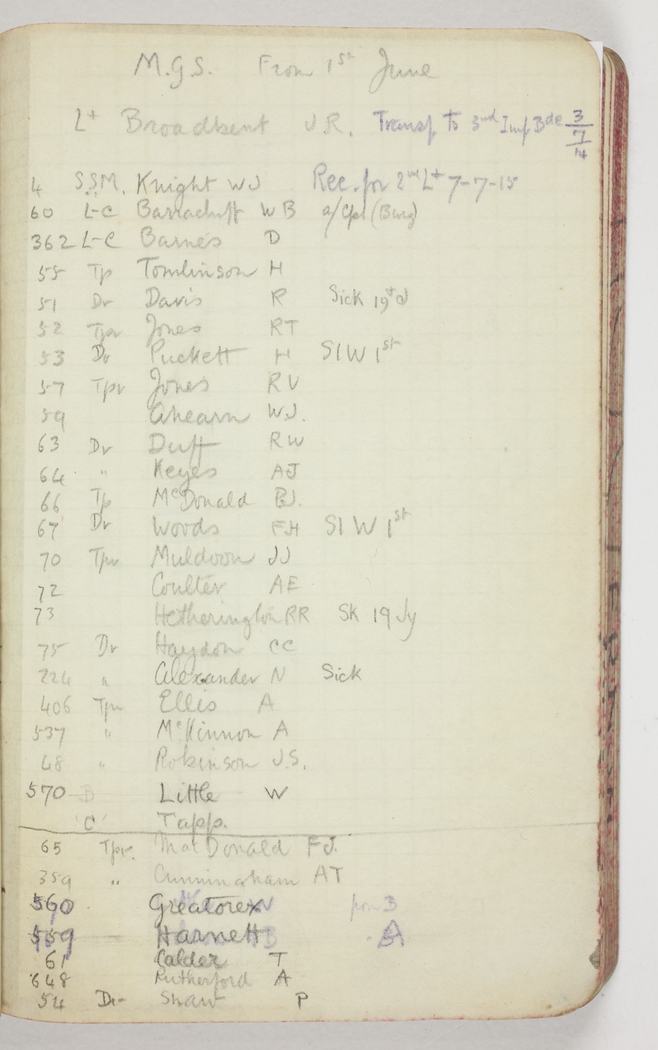 M.G.S. From 1st June
Lt Broadbent J.R. Transf to 3rd Imp Bde 3/7/4
4 S.S.M. Knight WJ Rec. for 2nd Lt 7-7-15
60 L-C Barracluff W B a/Cpl (Burg)
362 L-C Barnes D
55 Tp Tomlinson H
51 Dr Davis R Sick 19th
52 Tpr Jones RT
53 Dr Puckett H SIW 1st
57 Tpr Jones RV
59 Ahearn W.J.
63 Dr Duff RW
64 " Keyes AJ
66 Tp McDonald
67 Dr Woods FH SIW 1st
70 Tpr Muldoon JJ
72 Coulter AE
73 Hetherington RR Sk 19 Jy
75 Dr Haydon CC
224 " Alexander N Sick
406 Tpr Ellis A
537 " McKinnon A
48 " Robinson J.S.
570 B Little W
'C' Tapp.
65 Tpr. MacDonald FJ.
359 " Cunningham AT
Greatorex
559 Harnett
61 Calder T
648 Rutherford A
54 Dr Shaw P